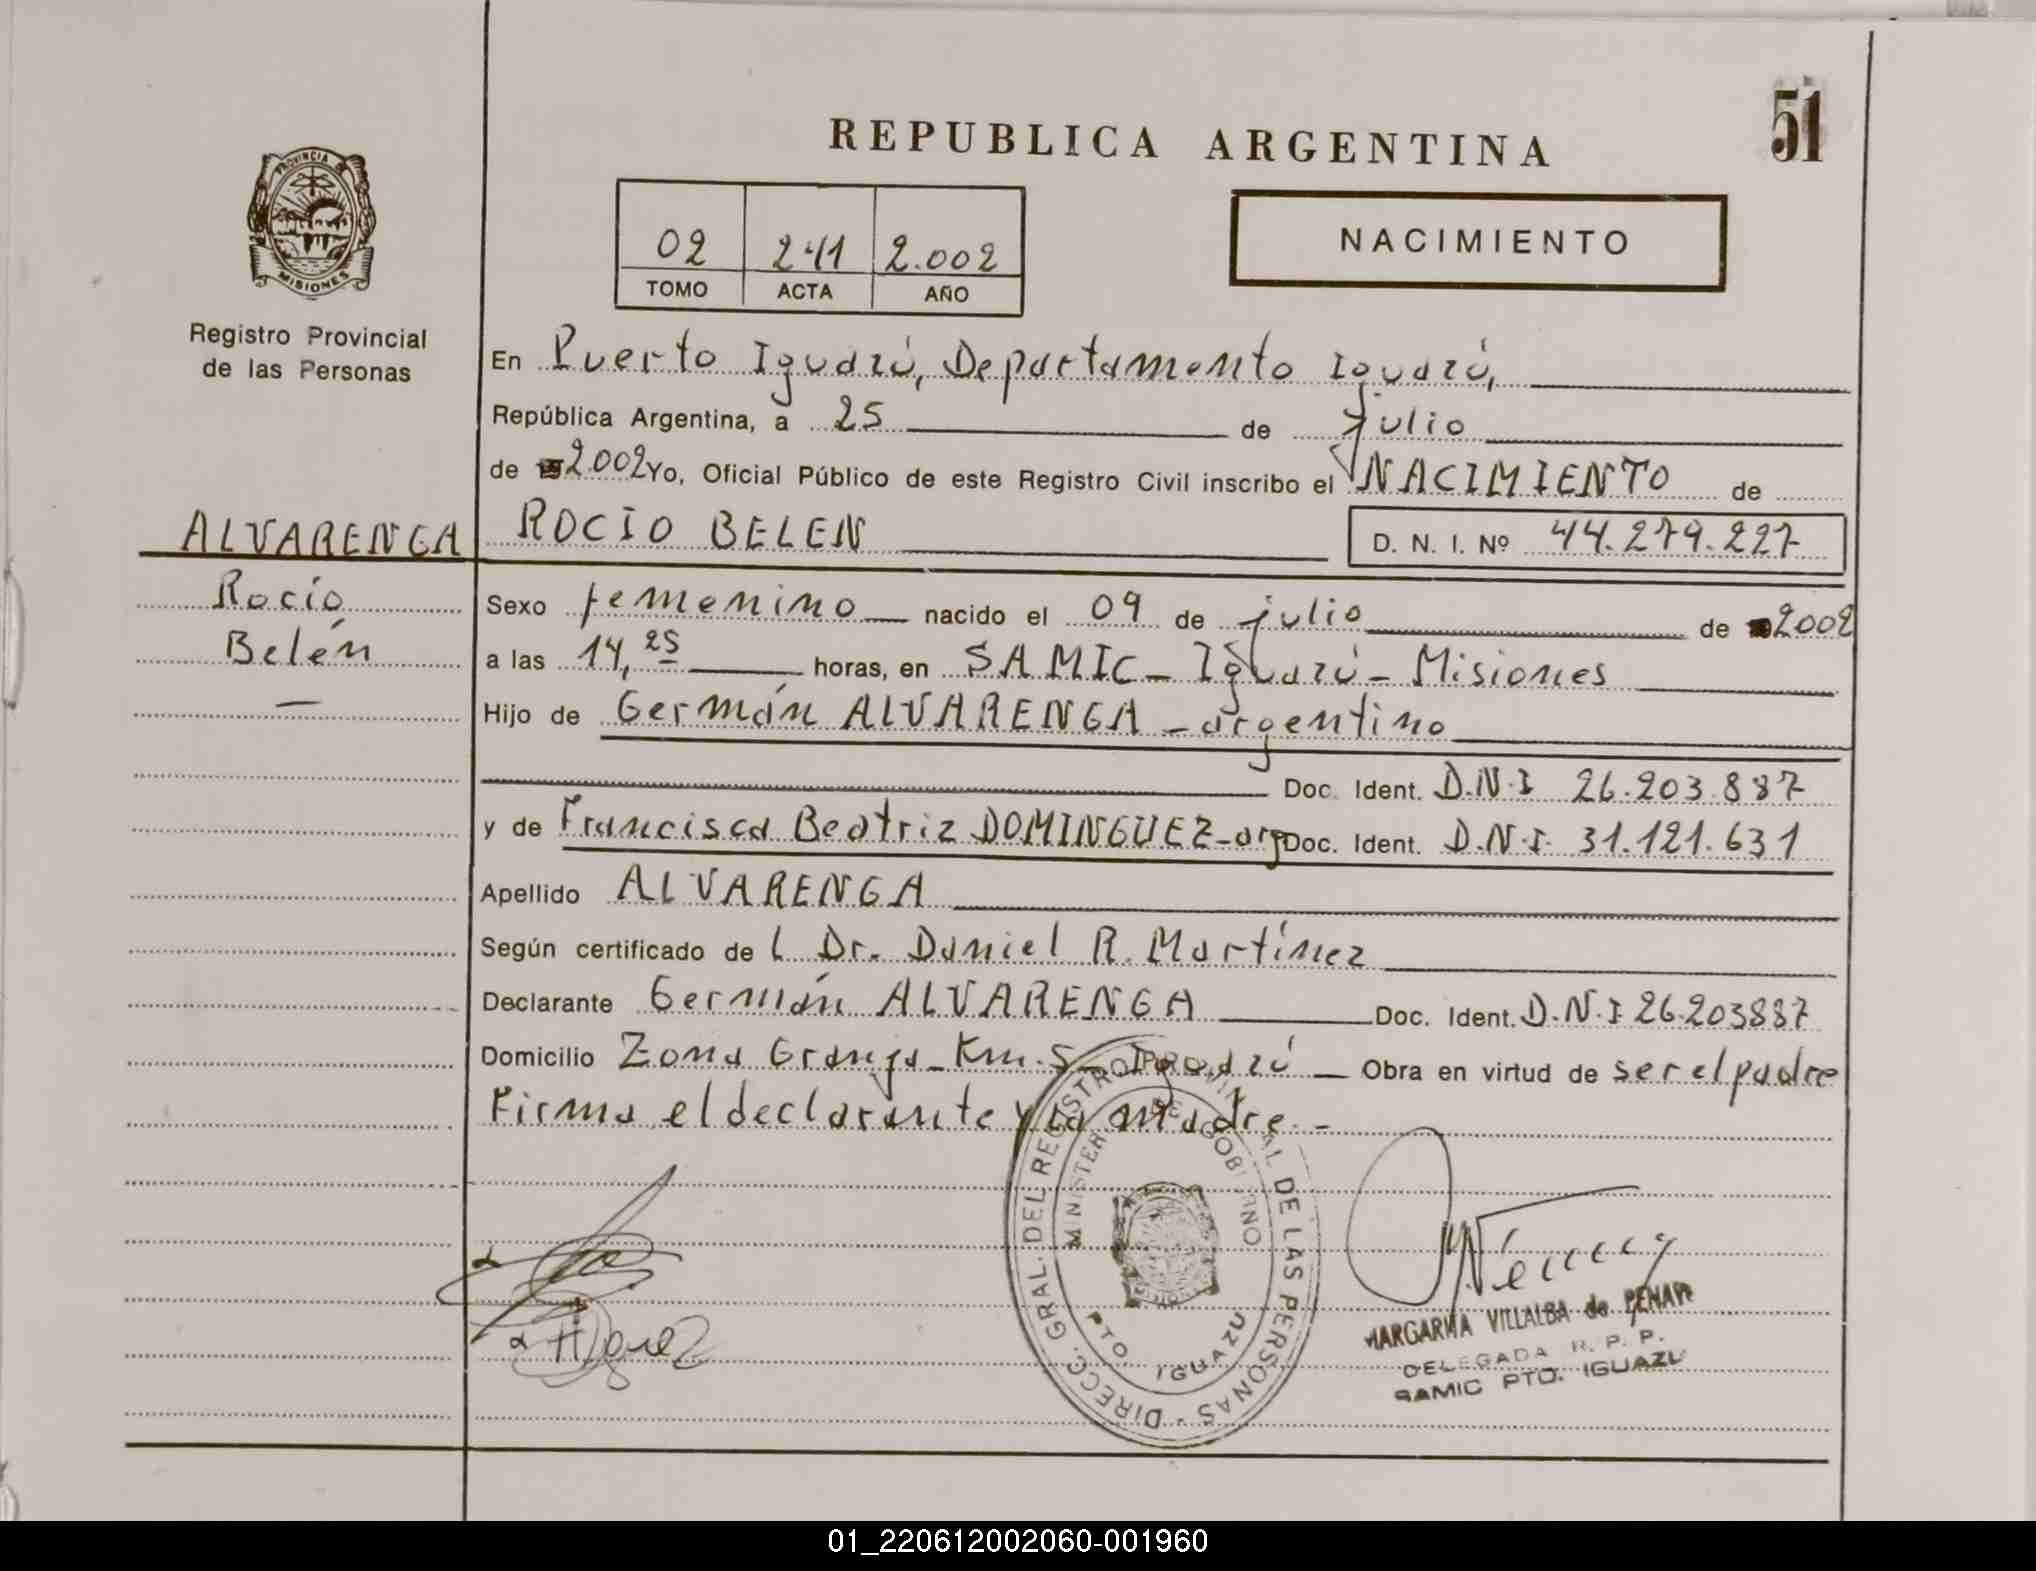 51
REPUBLICA ARGENTINA
PROVINCIA
MISIONES
Registro Provincial
de las Personas
02 241 2.002
TOMO ACTA AÑO
NACIMIENTO
En Puerto Iguazú, Departamento Iguazú,
República Argentina, a 25 de julio
de 2.002 Yo, Oficial Público de este Registro Civil inscribo el NACIMIENTO de
ALVARENGA ROCIO BELEN D. N. I. Nº 44.279.227
Rocío
Belén
—
Sexo femenino nacido el 09 de julio de 2002
a las 14,25 horas, en SAMIC - Iguazú - Misiones
Hijo de Germán ALVARENGA - argentino
Doc. Ident. D.N.I 26.203.887
y de Francisca Beatriz DOMINGUEZ - arg Doc. Ident. D.N.I. 31.121.631
Apellido ALVARENGA
Según certificado de L Dr. Daniel R. Martínez
Declarante Germán ALVARENGA Doc. Ident. D.N.I 26.203887
Domicilio Zona Granja - Km. 5 - Iguazú Obra en virtud de ser el padre
Firma el declarante y la madre. -
DIRECC. GRAL. DEL REGISTRO PROVINCIAL DE LAS PERSONAS -
MINISTER DE GOBIERNO
PTO IGUAZU
MARGARITA VILLALBA de
DELEGADA R. P. P.
SAMIC PTO. IGUAZU
01_220612002060-001960